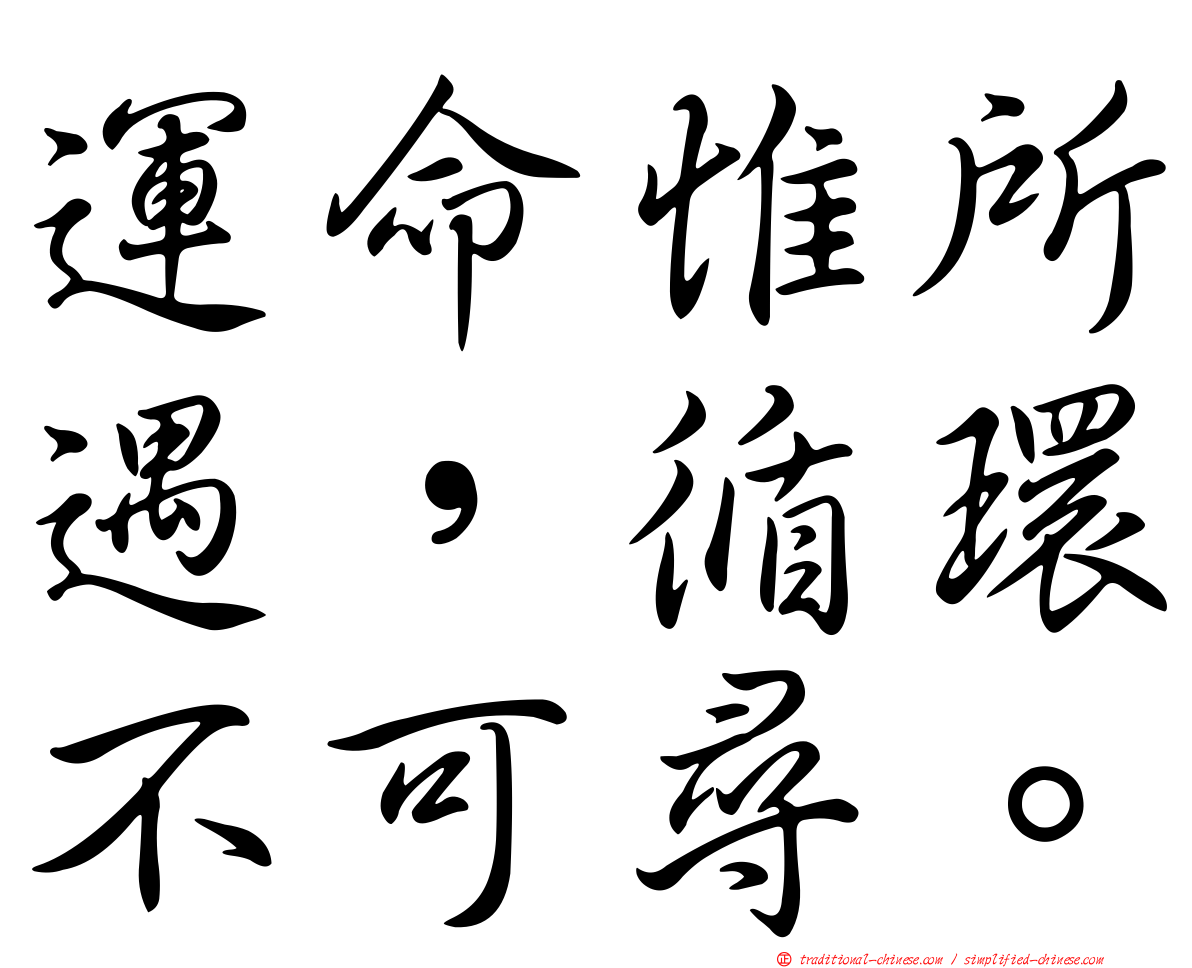 運命惟所
遇，循環
不可尋。
㊣ traditional-chinese.com / simplified-chinese.com